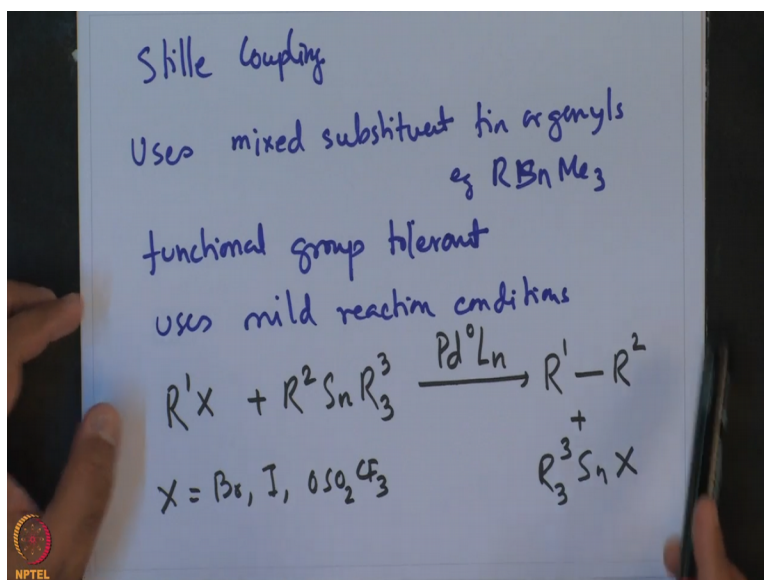 Stille Coupling
Uses mixed substituent tin organyls
eg RSnMe₃
functional group tolerant
uses mild reaction conditions
R¹X + R²SnR³₃ Pd⁰Ln → R¹ – R²
+
X = Br, I, OSO₂CF₃ R³₃SnX
NPTEL